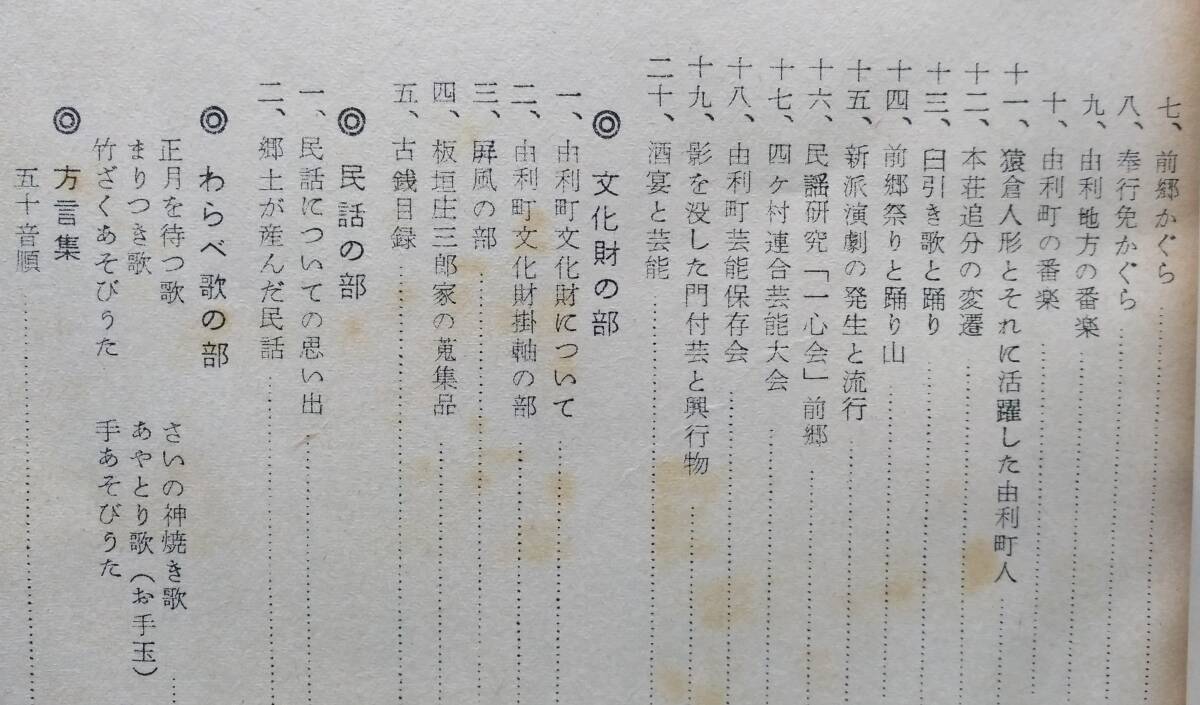 七、前郷かぐら
八、奉行免かぐら
九、由利地方の番楽
十、由利町の番楽
十一、猿倉人形とそれに活躍した由利町人
十二、本荘追分の変遷
十三、臼引き歌と踊り
十四、前郷祭りと踊り山
十五、新派演劇の発生と流行
十六、民謡研究「一心会」前郷
十七、四ヶ村連合芸能大会
十八、由利町芸能保存会
十九、影を没した門付芸と興行物
二十、酒宴と芸能
◎ 文化財の部
一、由利町文化財について
二、由利町文化財掛軸の部
三、屏風の部
四、板垣庄三郎家の蒐集品
五、古銭目録
◎ 民話の部
一、民話についての思い出
二、郷土が産んだ民話
◎ わらべ歌の部
正月を待つ歌 さいの神焼き歌
まりつき歌 あやとり歌(お手玉)
竹ざくあそびうた 手あそびうた
◎ 方言集
五十音順